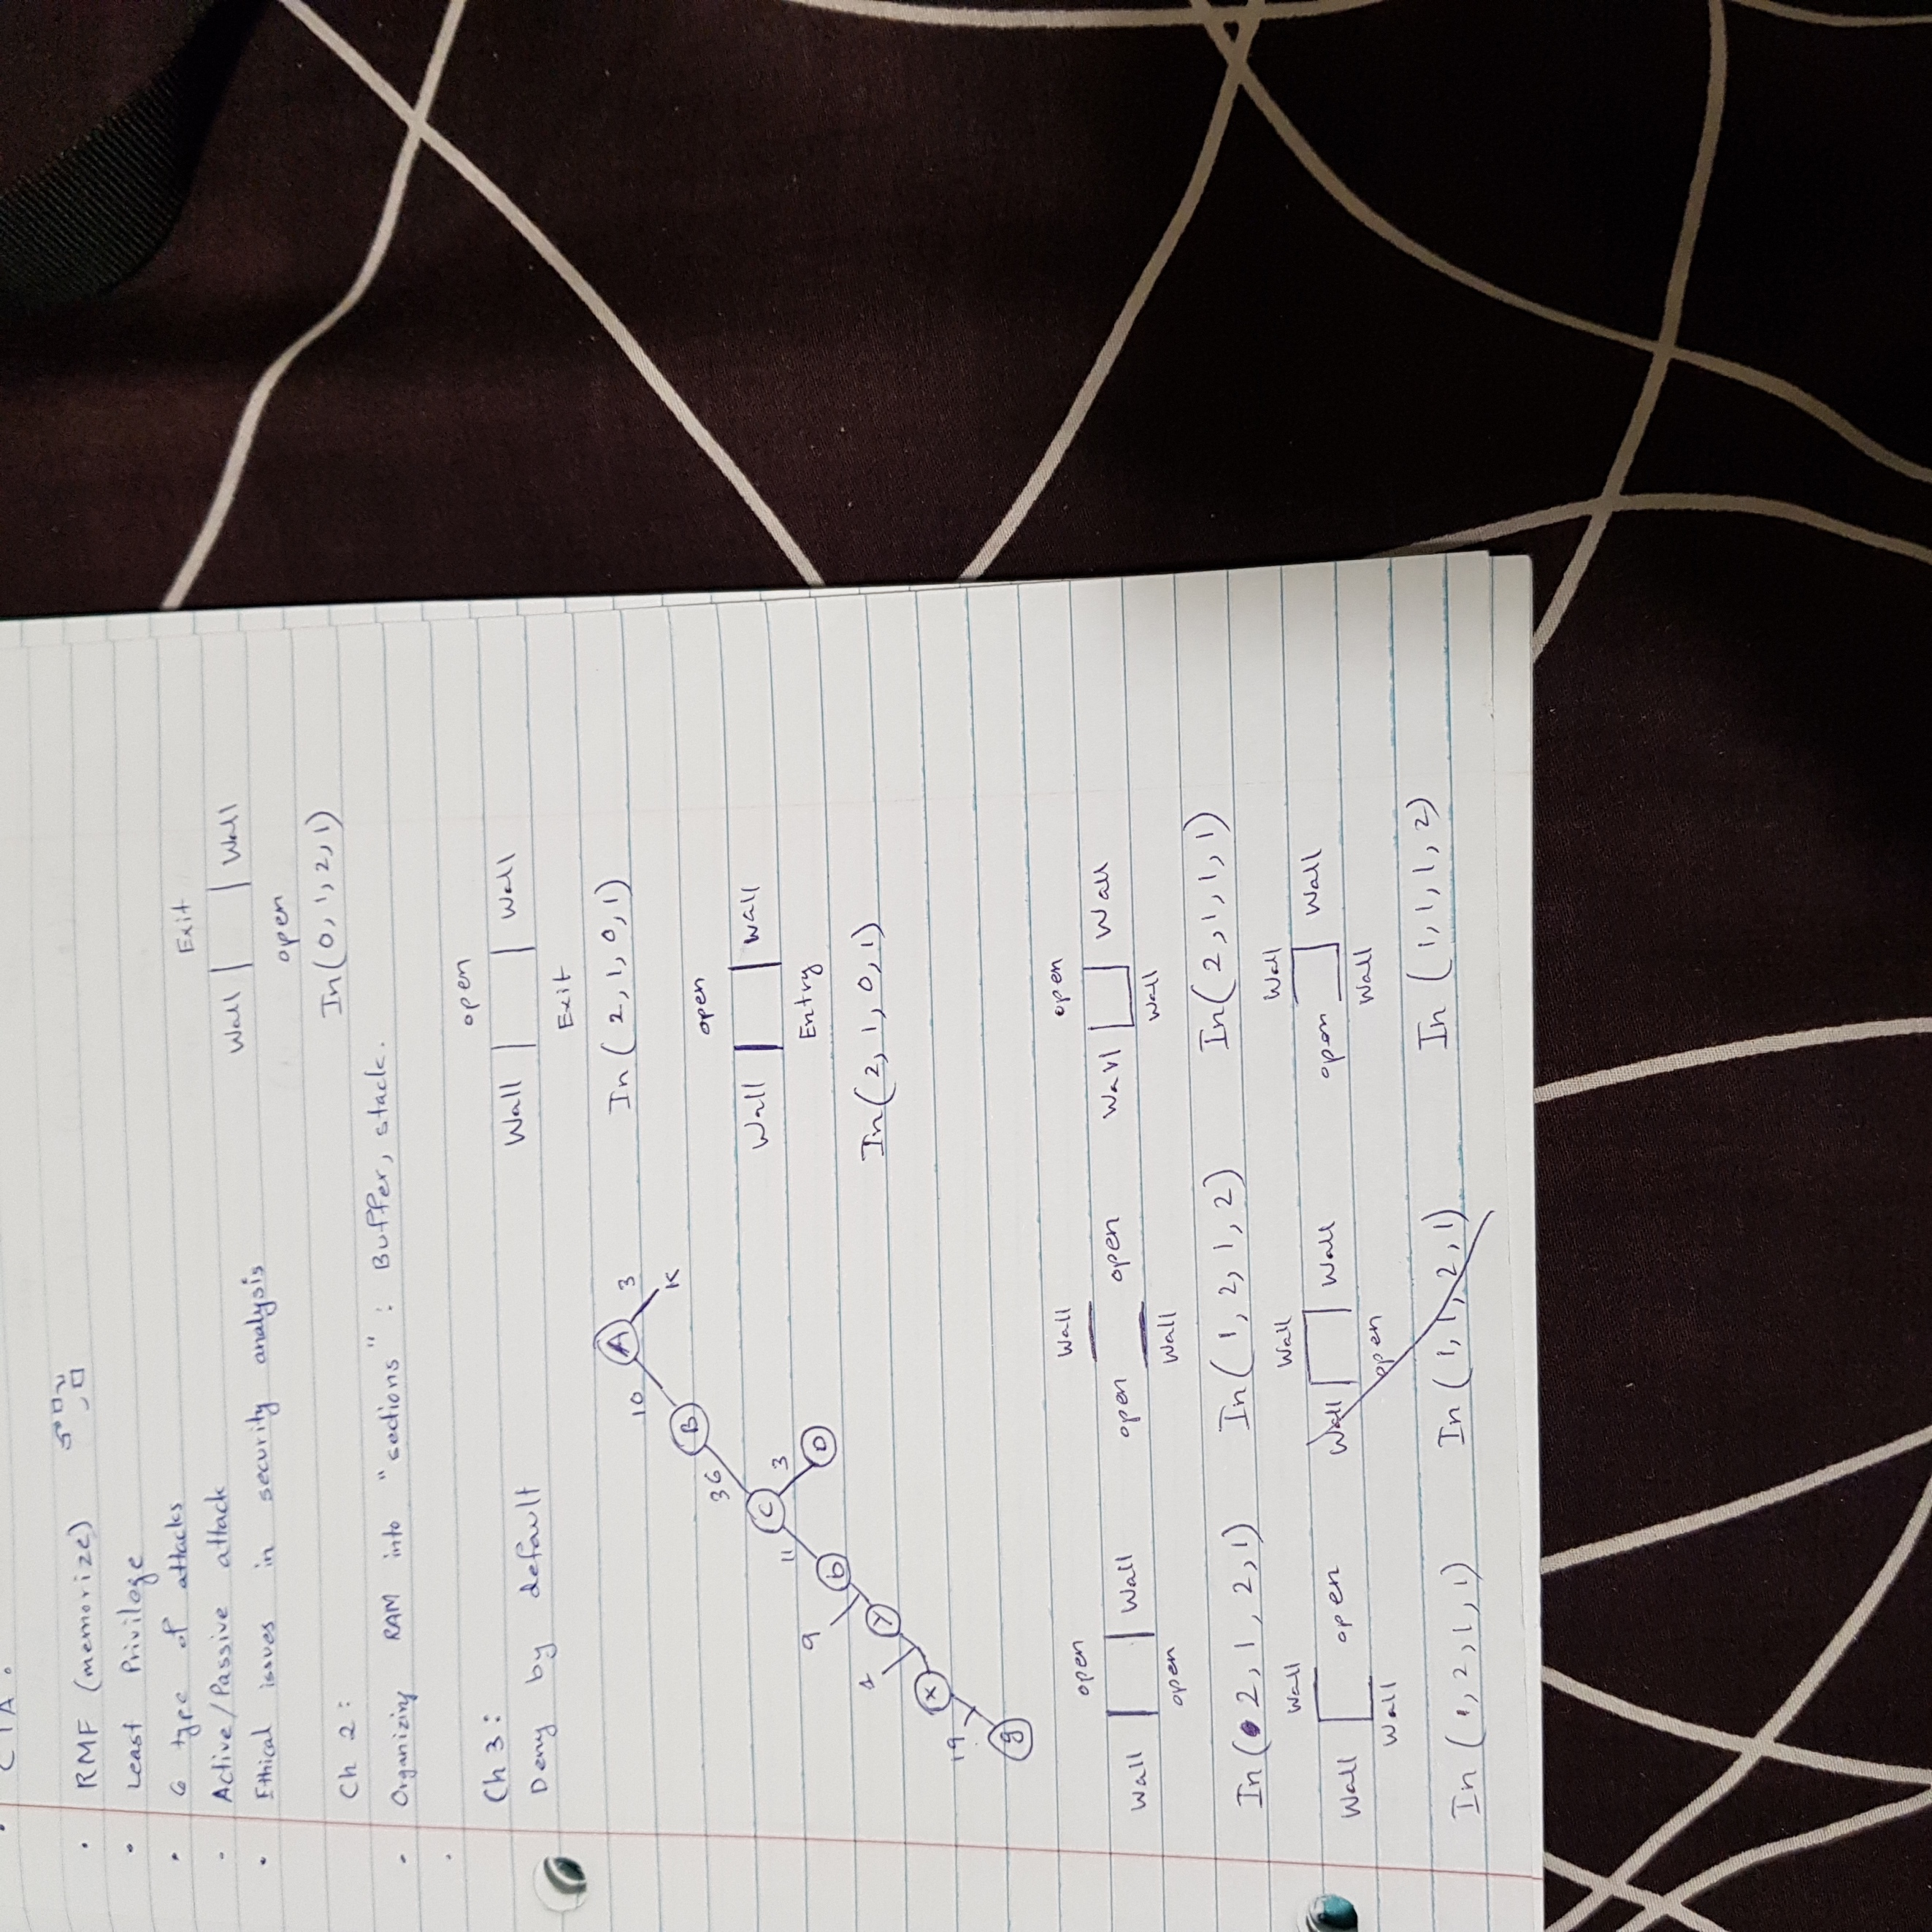 CIA.
• RMF (memorize)
• Least Privilege
• 6 type of attacks
• Active/Passive attack
• Ethical issues in security analysis
Exit
Wall Wall
open
In(0,1,2,1)
Ch 2:
• Organizing RAM into "sections": Buffer, stack.
•
Ch 3:
Deny by default
open
Wall Wall
Exit
In(2,1,0,1)
A 3
10 K
B
36
C 3
11 D
D
9
Y
4
X
19
9
open
Wall Wall
Entry
In(2,1,0,1)
open
Wall Wall
open
In(2,1,2,1)
Wall
open open
Wall
In(1,2,1,2)
open
Wall Wall
Wall
In(2,1,1,1)
Wall
Wall open
Wall
In(1,2,1,1)
Wall
Wall Wall
open
In(1,1,2,1)
Wall
open Wall
Wall
In(1,1,1,2)